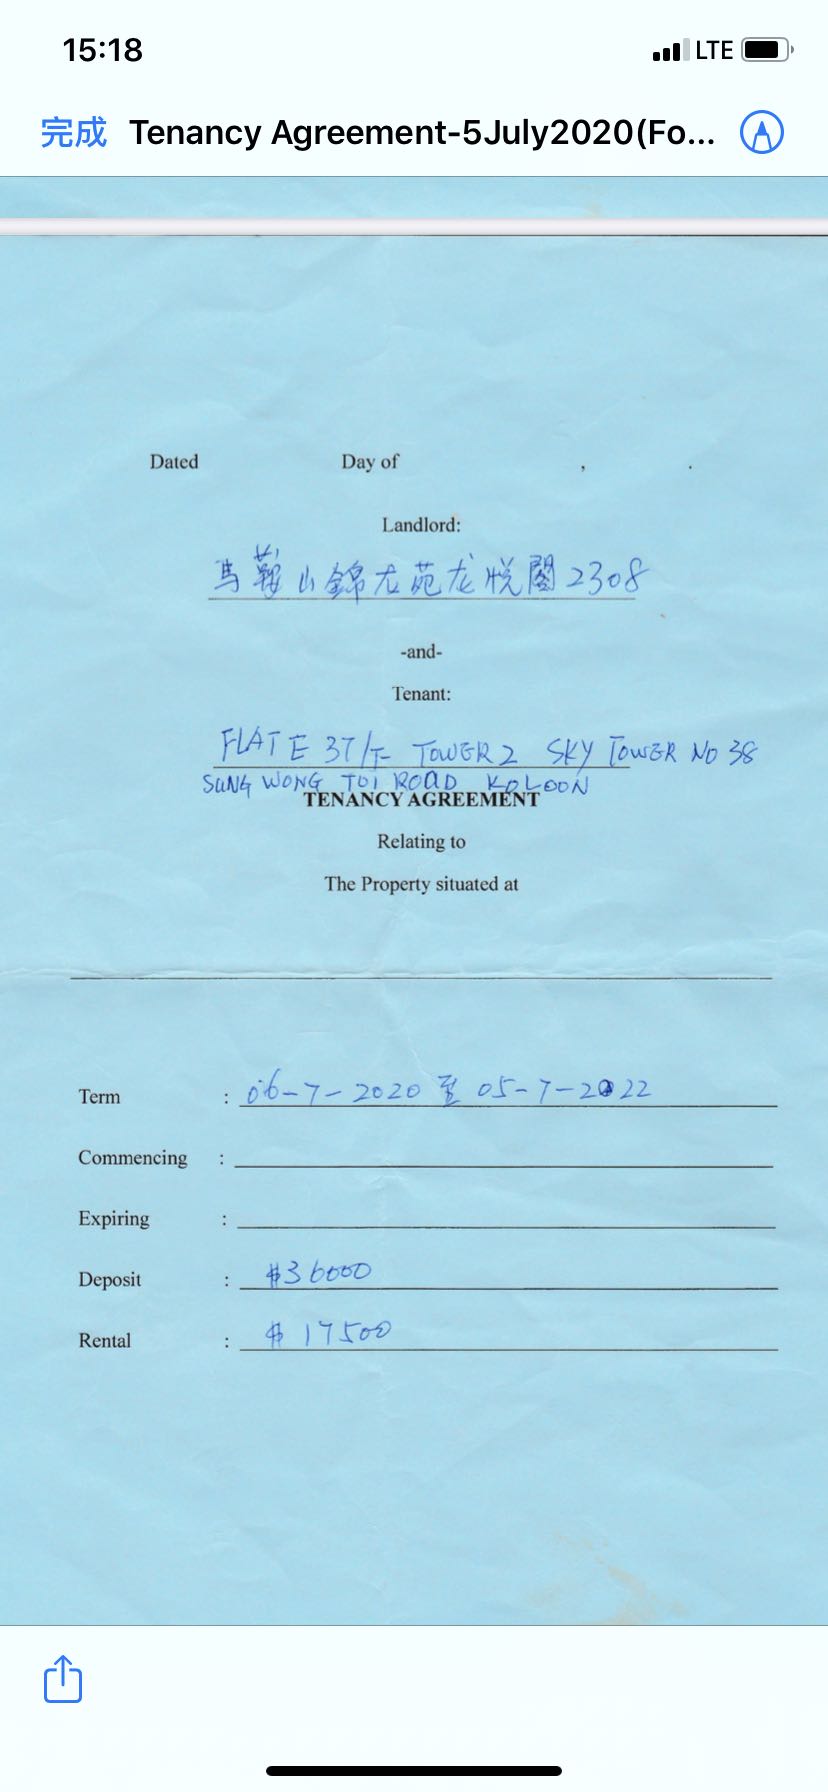 15:18
LTE
完成 Tenancy Agreement-5July2020(Fo...
Dated Day of , .
Landlord:
馬鞍山錦龙苑龙悦閣2308
-and-
Tenant:
FLAT E 37/F TOWER 2 SKY TOWER NO 38
SUNG WONG TOI ROAD KOLOON
TENANCY AGREEMENT
Relating to
The Property situated at
Term : 06-7-2020 至 05-7-2022
Commencing :
Expiring :
Deposit : $36000
Rental : $17500